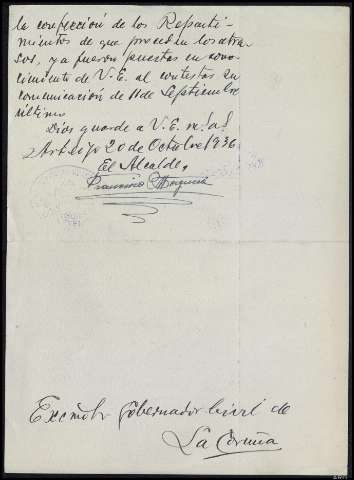 la confección de los Reparti-
mientos de que proceden los atra-
sos, ya fueron puestas en cono-
cimiento de V.E. al contestar su
comunicación de 11 de Septiembre
último
Dios guarde a V.E. m! a!
Arteijo 20 de Octubre 1936
El Alcalde,
Francisco
Excmo Sr Gobernador Civil de
La Coruña